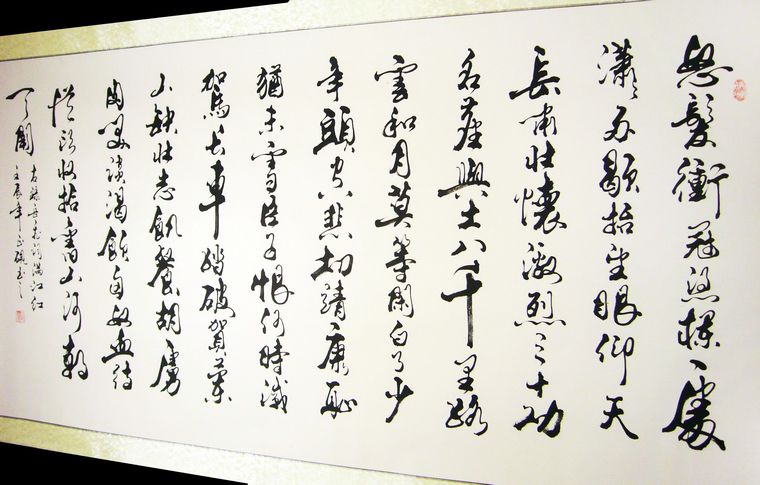 怒髮衝冠憑欄處
瀟瀟雨歇抬望眼仰天
長嘯壯懷激烈三十功
名塵與土八千里路
雲和月莫等閑白了少
年頭空悲切靖康恥
猶未雪臣子恨何時滅
駕長車踏破賀蘭
山缺壯志飢餐胡虜
肉笑談渴飲匈奴血待
從頭收拾舊山河朝
天闕
岳飛詞滿江红
壬辰年